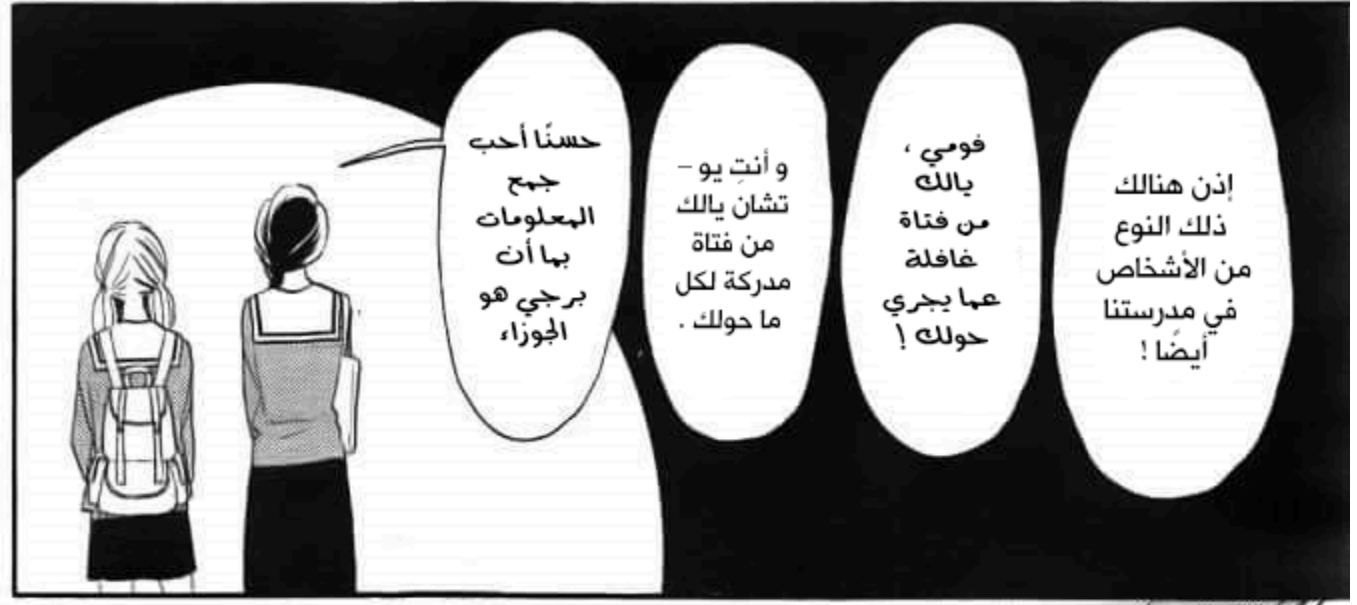 إذن هنالك
ذلك النوع
من الأشخاص
في مدرستنا
أيضًا !
فومي ،
يالك
من فتاة
غافلة
عما يجري
حولك !
و أنتِ يو –
تشان يالك
من فتاة
مدركة لكل
ما حولك .
حسنًا أحب
جمع
المعلومات
بما أن
برجي هو
الجوزاء